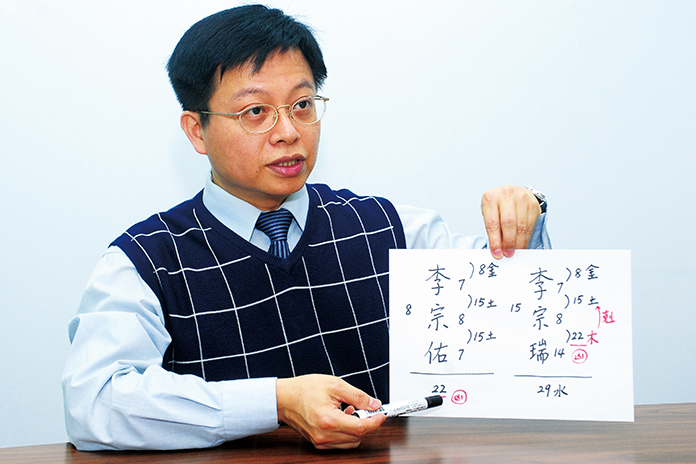 李 7 )8金
8 宗 8 )15土
佑 7 )15土
22 凶
李 7 )8金
15 宗 8 )15土 剋
瑞 14 )22木 凶
29水